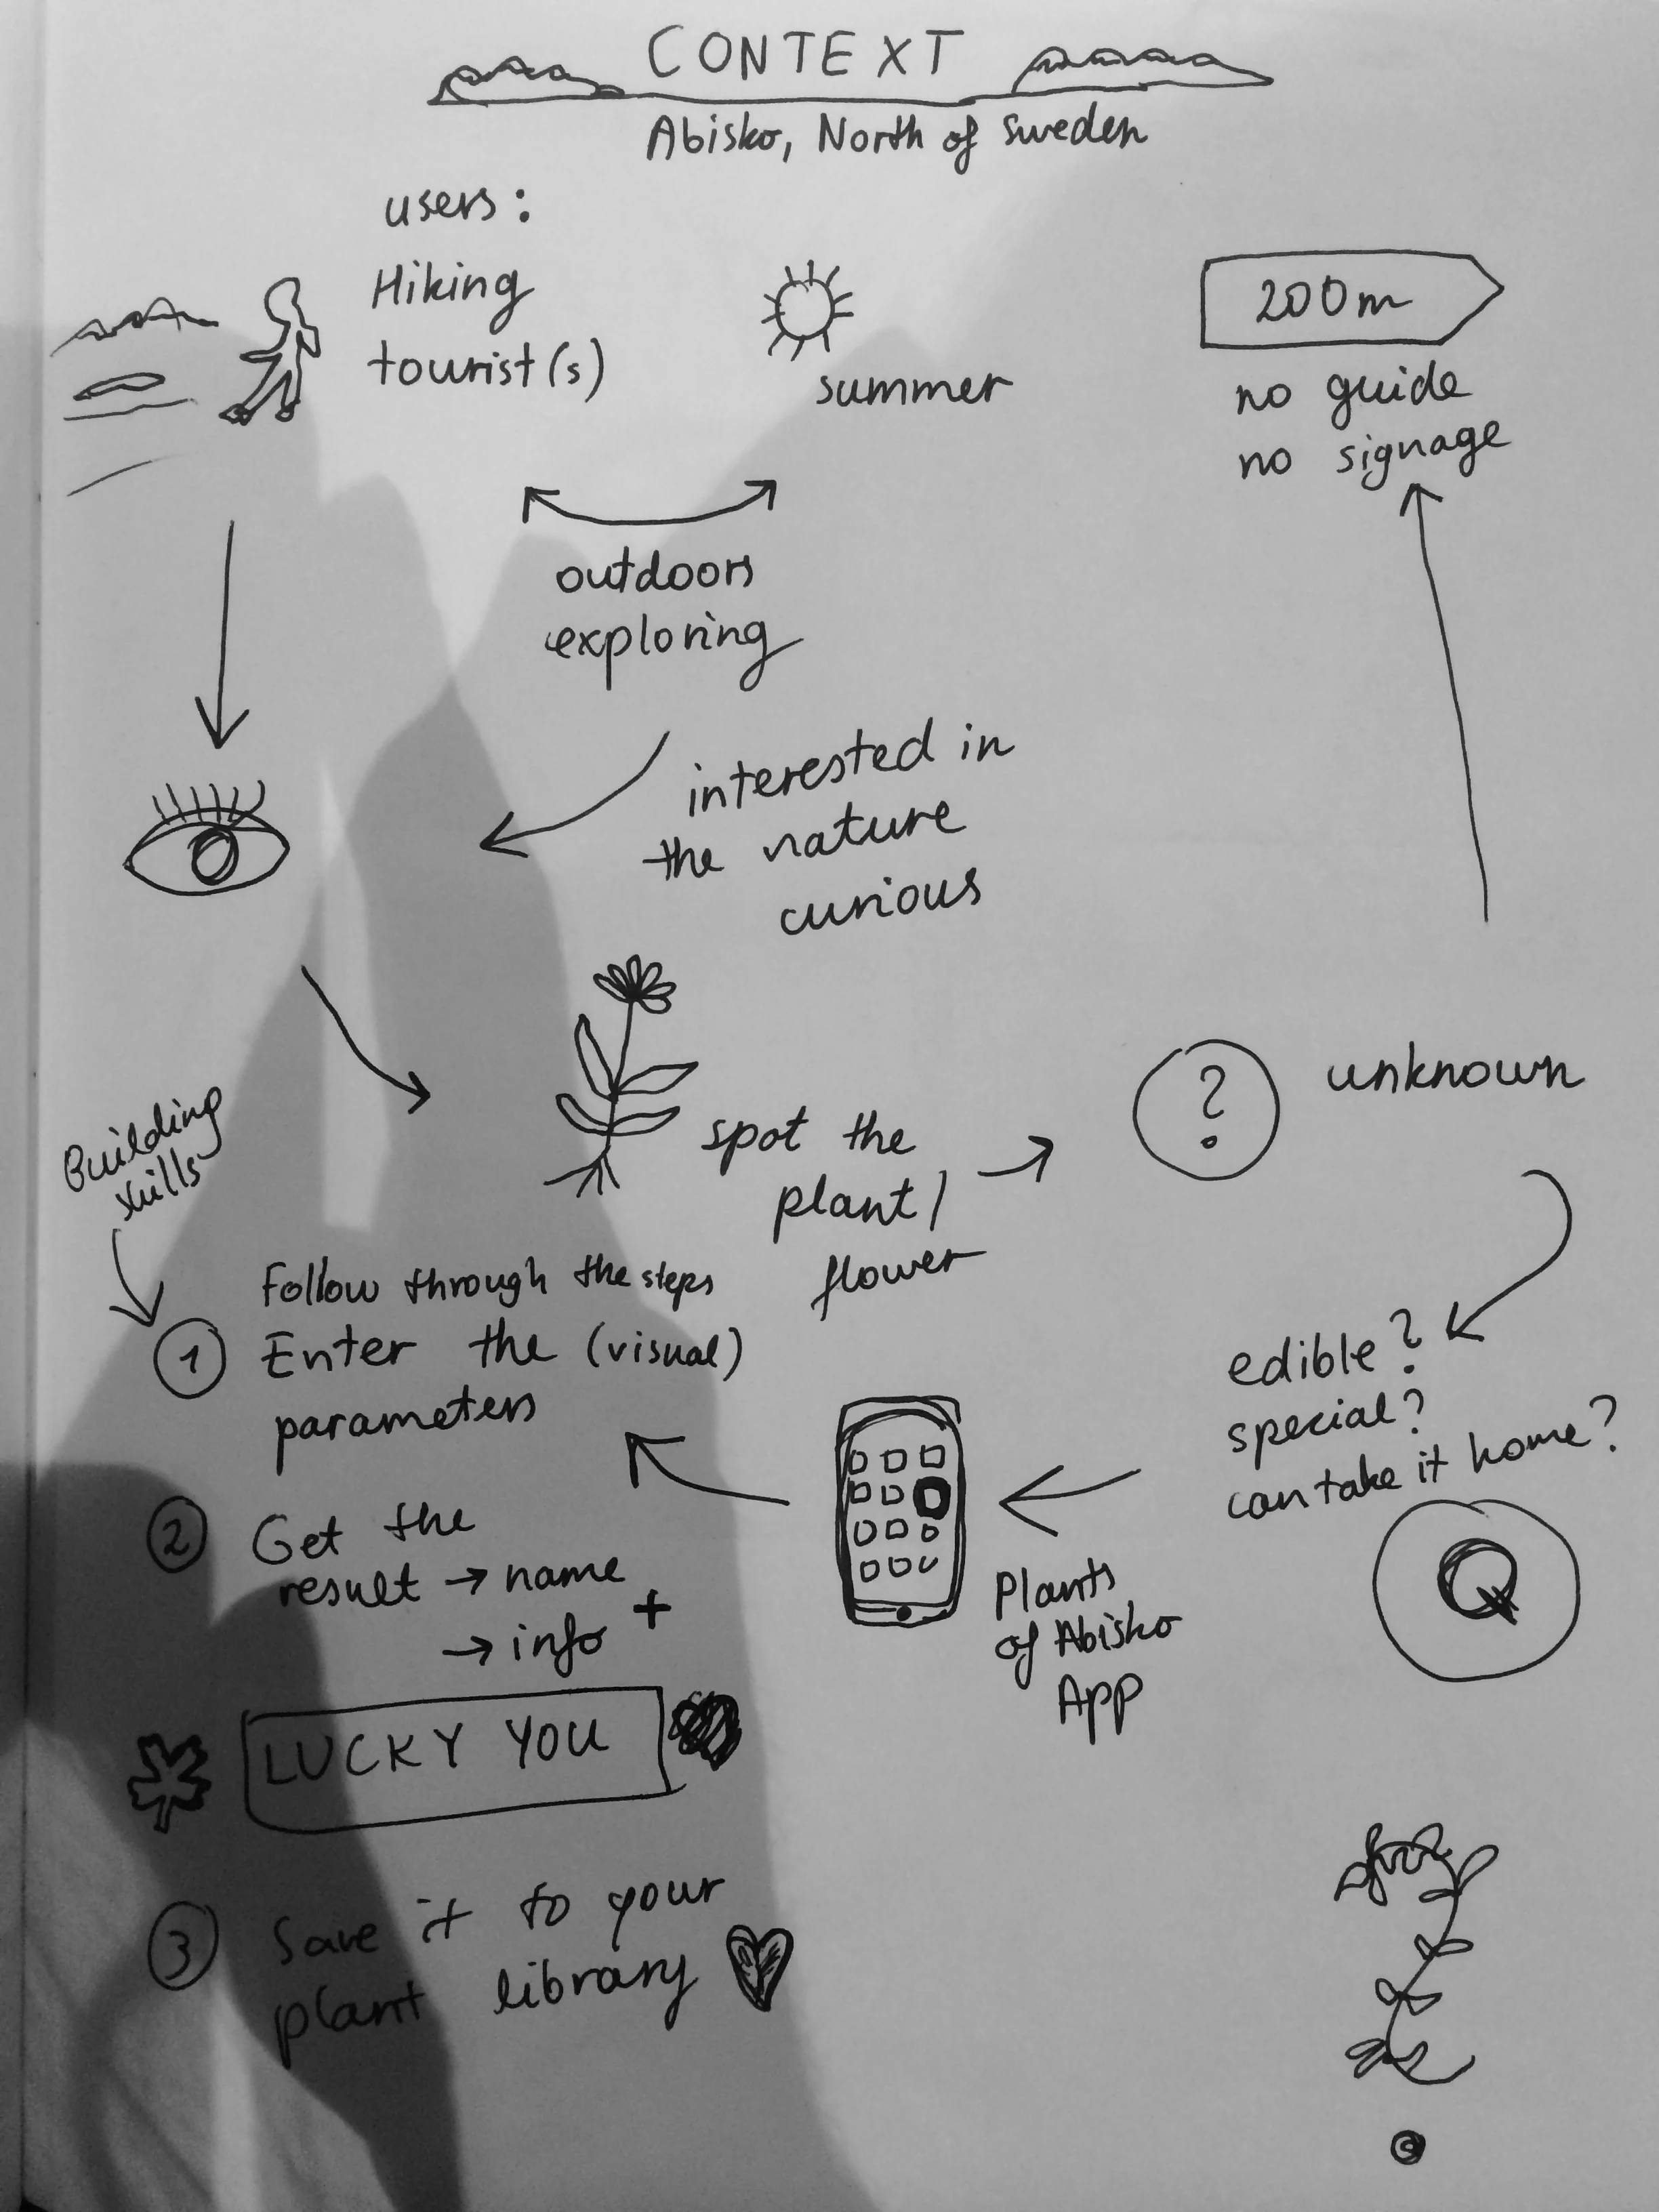 CONTEXT
Abisko, North of Sweden
users:
Hiking
tourist(s)
summer
200m
no guide
no signage
outdoors
exploring
interested in
the nature
curious
spot the
plant/
flower
?
unknown
edible?
special?
can take it home?
Q
Plants
of Abisko
App
Building
skills
Follow through the steps
1 Enter the (visual)
parameters
2 Get the
result → name
→ info +
LUCKY YOU
3 Save it to your
plant library